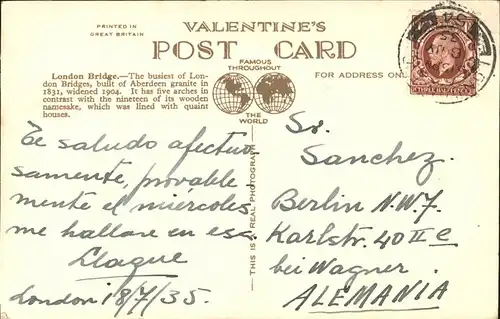 PRINTED IN
GREAT BRITAIN
VALENTINE'S
POST CARD
FAMOUS
THROUGHOUT
THE
WORLD
FOR ADDRESS ONL
London Bridge.—The busiest of Lon-
don Bridges, built of Aberdeen granite in
1831, widened 1904. It has five arches in
contrast with the nineteen of its wooden
namesake, which was lined with quaint
houses.
Te saludo afectuo
samente, provable
mente el miércoles
me hallare en esa.
Llaque
London 18/7/35.
— THIS IS A REAL PHOTOGRAPH
Sr.
Sanchez.
Berlin N.W.7.
Karlstr. 40 II e
bei Wagner.
ALEMANIA
THREE HALFPENCE